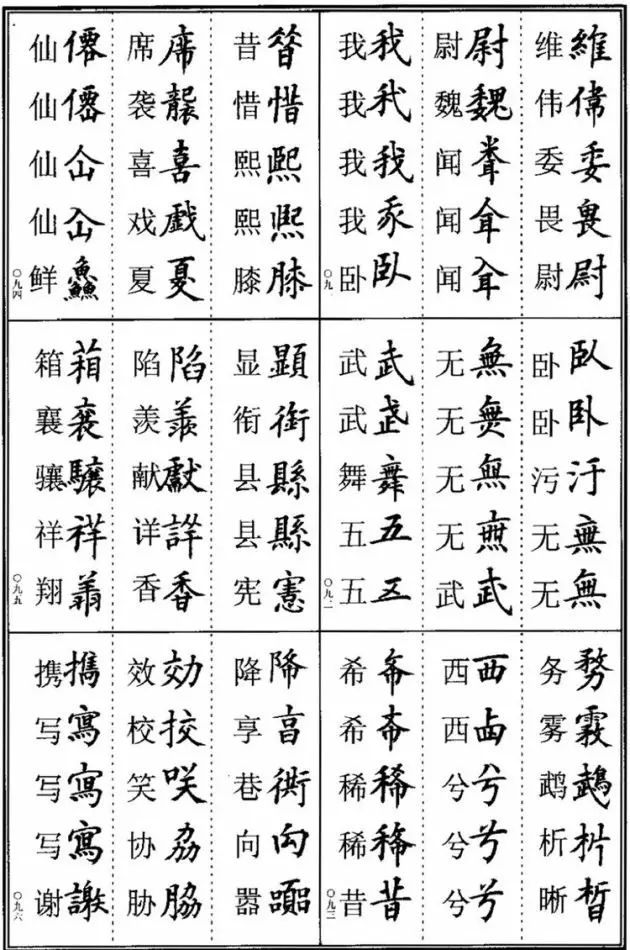 维維伟偉委委畏畏尉尉
尉尉魏魏闻闻闻
我我我我我我我卧卧
〇九一
卧臥卧卧污汙无無无無
无無无無无無无無武武
武武武武舞舞五五五五
〇九二
务務雾霧鹉鵡析析晰晳
西西西西兮兮兮兮兮兮
希希希希稀稀稀稀昔昔
〇九三
昔昔惜惜熙熙熙熙膝膝
席席袭襲喜喜戏戲夏夏
仙僊仙僊仙仚仙仚鲜鱻
〇九四
显顯衔銜县縣县縣宪憲
陷陷羡羨献獻详詳香香
箱葙襄襄骧驤祥祥翔翔
〇九五
降降享亯巷衖向向嚣嚻
效効校挍笑咲协劦胁脇
携攜写寫写寫写寫谢謝
〇九六